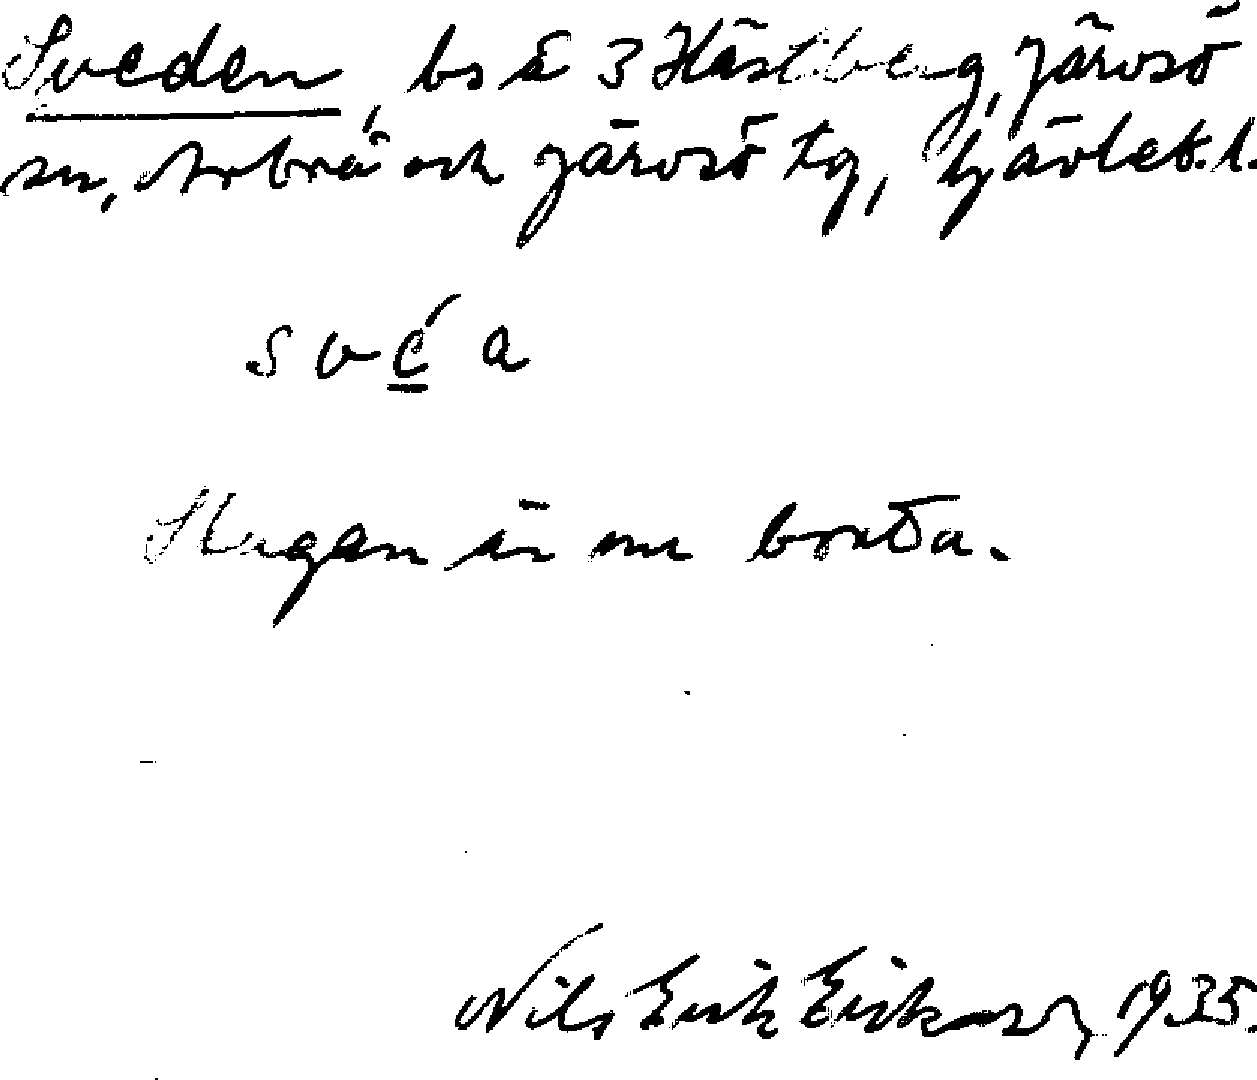 Sveden, bs å 3 Hästberg, Järvsö
sn, Arbrå och Järvsö tg, Gävleb. l.
své̱ a
Stugan är nu borta.
Nils Erik Eriksson, 1935.